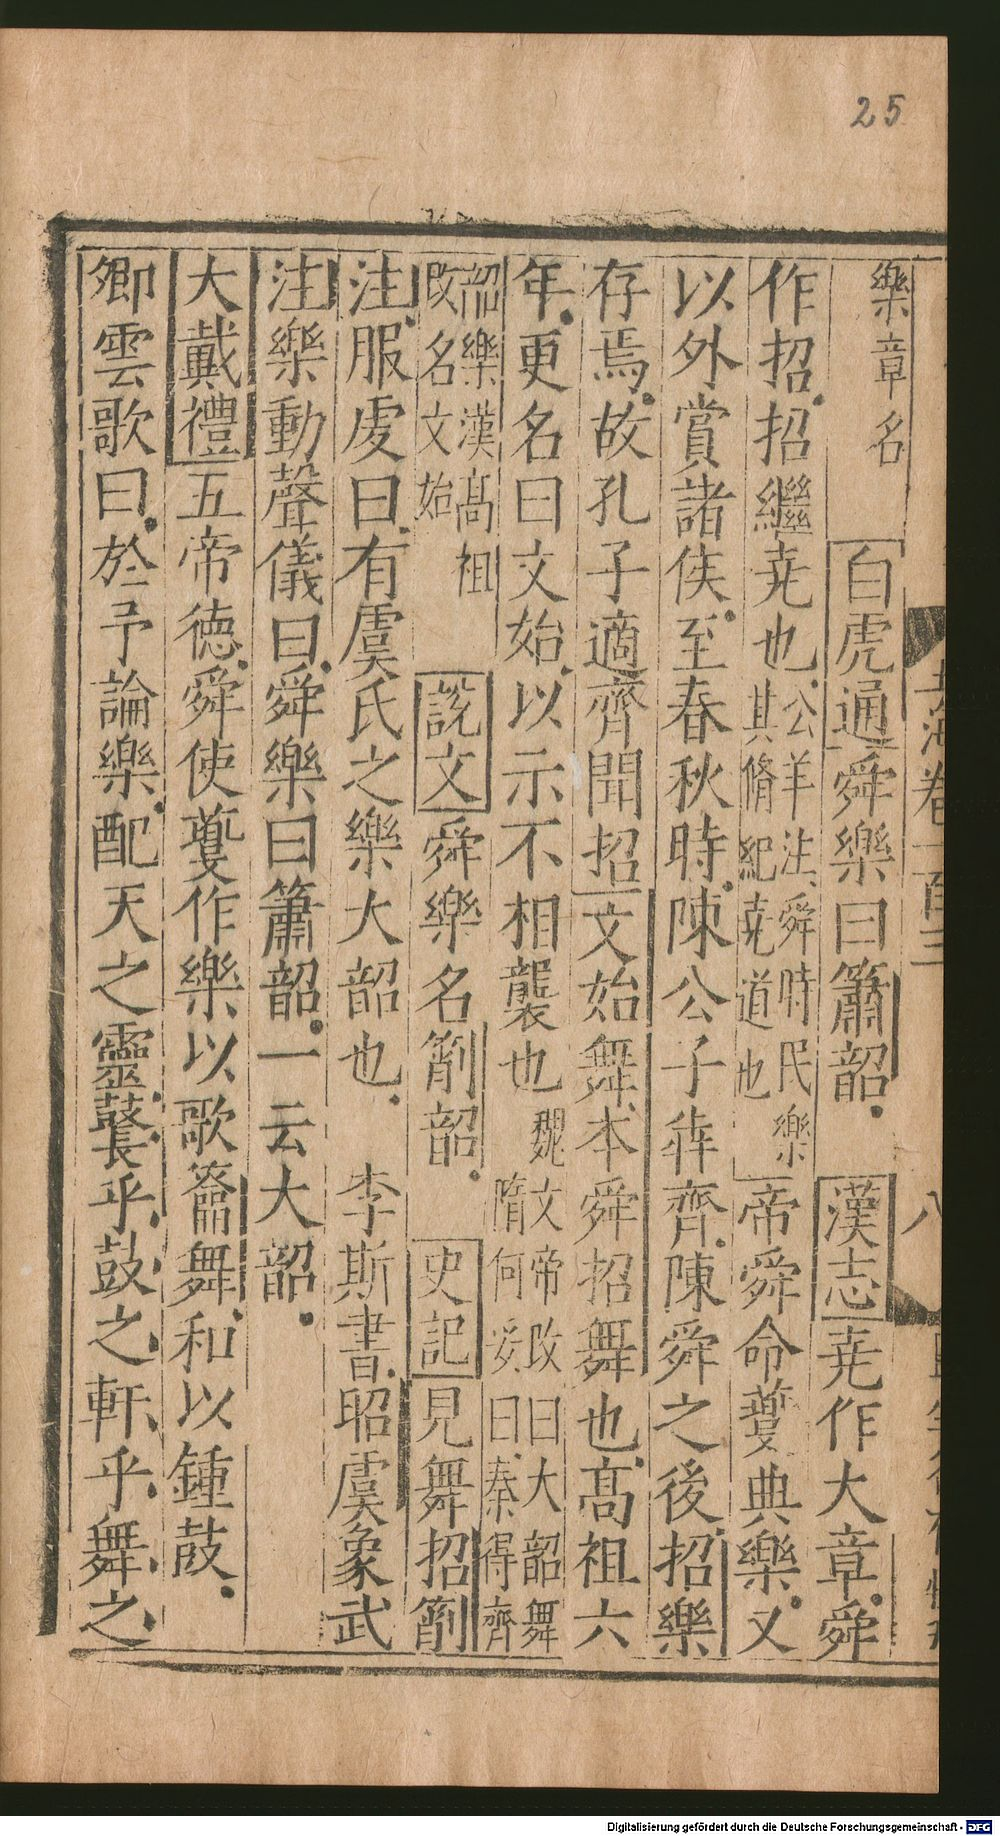 25
樂章名　白虎通舜樂曰簫韶　漢志堯作大章舜
作招招繼堯也公羊注舜時民樂其脩紀堯道也帝舜命夔典樂又
以外賞諸侯至春秋時陳公子犇齊陳舜之後招樂
存焉故孔子適齊聞招文始舞本舜招舞也高祖六
年更名曰文始以示不相襲也魏文帝改曰大韶舞隋何妥曰秦得齊
韶樂漢高祖改名文始　說文舜樂名箾韶　史記見舞招箾
注服虔曰有虞氏之樂大韶也　李斯書昭虞象武
注樂動聲儀曰舜樂曰簫韶一云大韶
大戴禮五帝德舜使夔作樂以歌籥舞和以鍾鼓
卿雲歌曰於予論樂配天之靈鼚乎鼓之軒乎舞之
玉海卷一百三
八
Digitalisierung gefördert durch die Deutsche Forschungsgemeinschaft - DFG